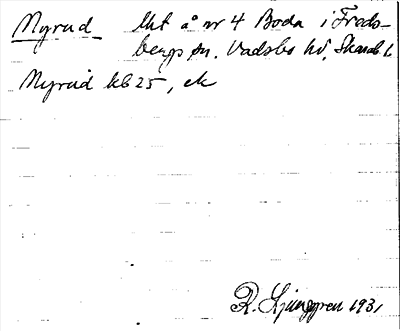 Myrud lht å nr 4 Boda i Freds-
bergs sn. Vadsbo hd, Skarab. l.
Myrud kb 25, ek
R. Ljunggren 1931